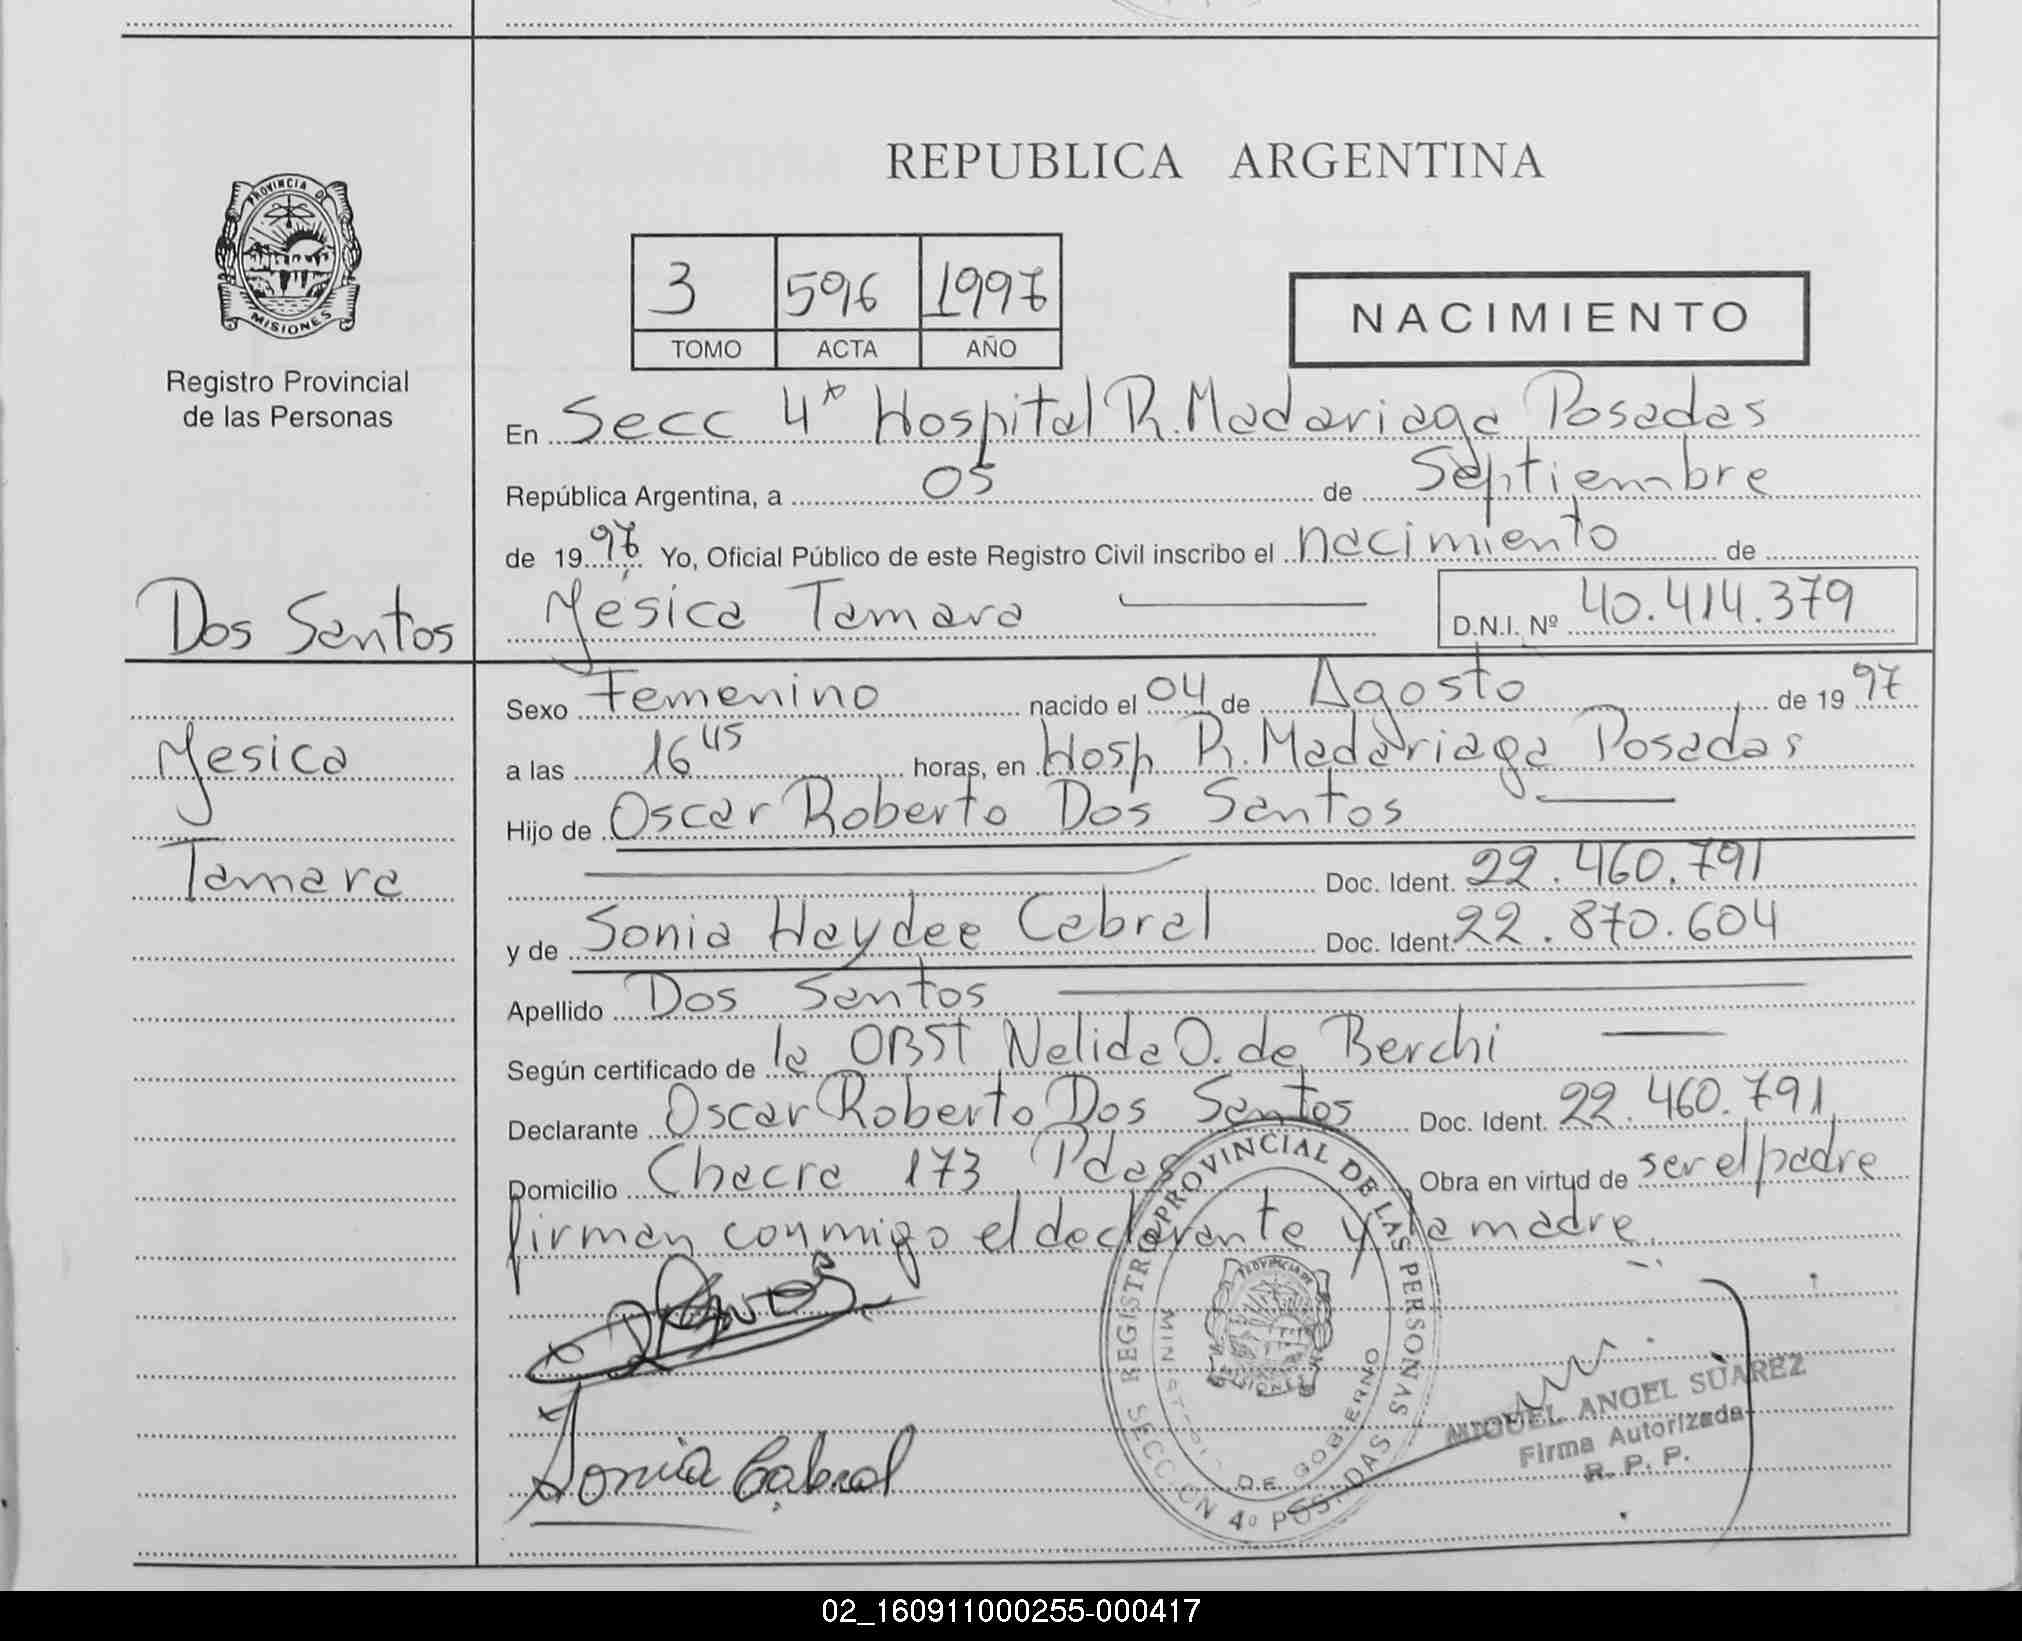 REPUBLICA ARGENTINA
PROVINCIA DE
MISIONES
Registro Provincial
de las Personas
3 596 1997
TOMO ACTA AÑO
NACIMIENTO
En Secc 4ª Hospital R. Madariaga Posadas
República Argentina, a 05 de Septiembre
de 1997 Yo, Oficial Público de este Registro Civil inscribo el nacimiento de
Dos Santos
Yésica Tamara D.N.I. Nº 40.414.379
Sexo Femenino nacido el 04 de Agosto de 1997
Yesica
a las 16 45 horas, en Hosp R. Madariaga Posadas
Hijo de Oscar Roberto Dos Santos
Tamara
Doc. Ident. 22.460.791
y de Sonia Haydee Cabral Doc. Ident. 22.870.604
Apellido Dos Santos
Según certificado de la OBST Nelida O. de Berchi
Declarante Oscar Roberto Dos Santos Doc. Ident. 22.460.791
Domicilio Chacra 173 Pdas Obra en virtud de ser el padre
firman conmigo el declarante y la madre.
REGISTRO PROVINCIAL DE LAS PERSONAS
SECCION 4º POSADAS
MINISTERIO DE GOBIERNO
PROVINCIA DE
MISIONES
Sonia Cabral
MIGUEL ANGEL SUAREZ
Firma Autorizada
R. P. P.
02_160911000255-000417